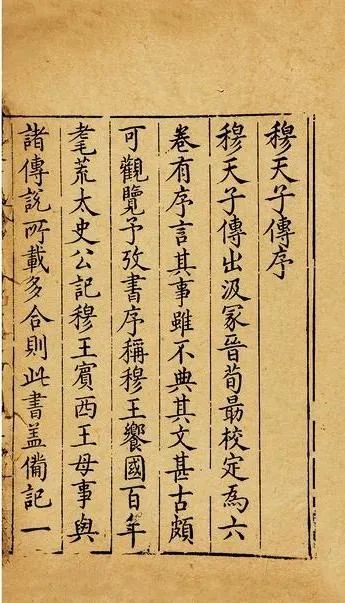 穆天子傳序
穆天子傳出汲冢晉荀勗校定為六
卷有序言其事雖不典其文甚古頗
可觀覽予攷書序稱穆王饗國百年
耄荒太史公記穆王賓西王母事與
諸傳說所載多合則此書盖備記一